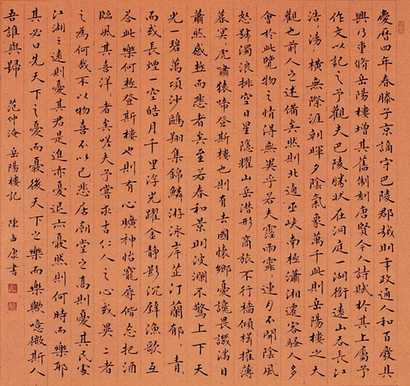 慶曆四年春滕子京謫守巴陵郡越明年政通人和百廢具
興乃重脩岳陽樓增其舊制刻唐賢今人詩賦於其上屬予
作文以記之予觀夫巴陵勝狀在洞庭一湖銜遠山吞長江
浩々湯々橫無際涯朝暉夕陰氣象萬千此則岳陽樓之大
觀也前人之述備矣然則北通巫峽南極瀟湘遷客騷人多
會於此覽物之情得無異乎若夫霪雨霏々連月不開陰風
怒號濁浪排空日星隱耀山岳潛形商旅不行檣傾楫摧薄
暮冥々虎嘯猿啼登斯樓也則有去國懷鄉憂讒畏譏滿目
蕭然感極而悲者矣至若春和景明波瀾不驚上下天
光一碧萬頃沙鷗翔集錦鱗游泳岸芷汀蘭郁々青々
而或長煙一空皓月千里浮光躍金靜影沉璧漁歌互
答此樂何極登斯樓也則有心曠神怡寵辱偕忘把酒
臨風其喜洋々者矣嗟夫予嘗求古仁人之心或異二者
之為何哉不以物喜不以己悲居廟堂之高則憂其民處
江湖之遠則憂其君是進亦憂退亦憂然則何時而樂耶
其必曰先天下之憂而憂後天下之樂而樂歟噫微斯人
吾誰與歸 范仲淹 岳陽樓記 陳康書